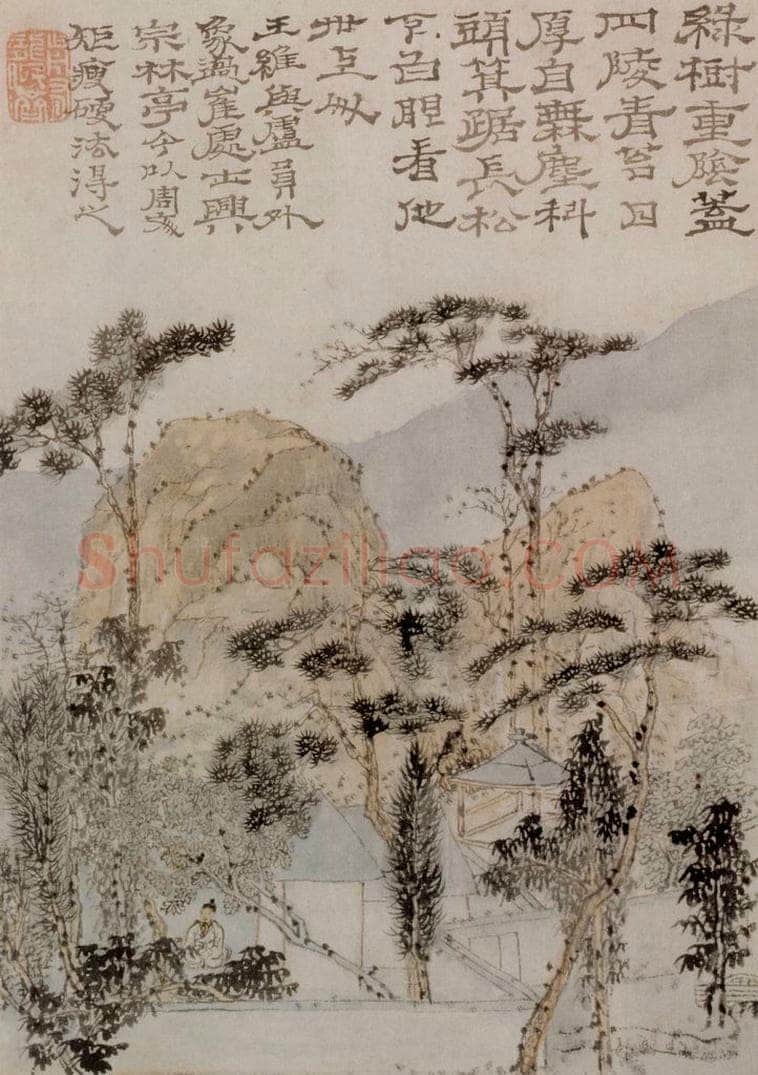 綠樹重陰蓋
四隣青苔日
厚自無塵科
頭箕踞長松
下白眼看他
世上人
王維與盧員外
象過崔處士興
宗林亭今以周文
矩瘦硬法得之
Shufaziliao.COM